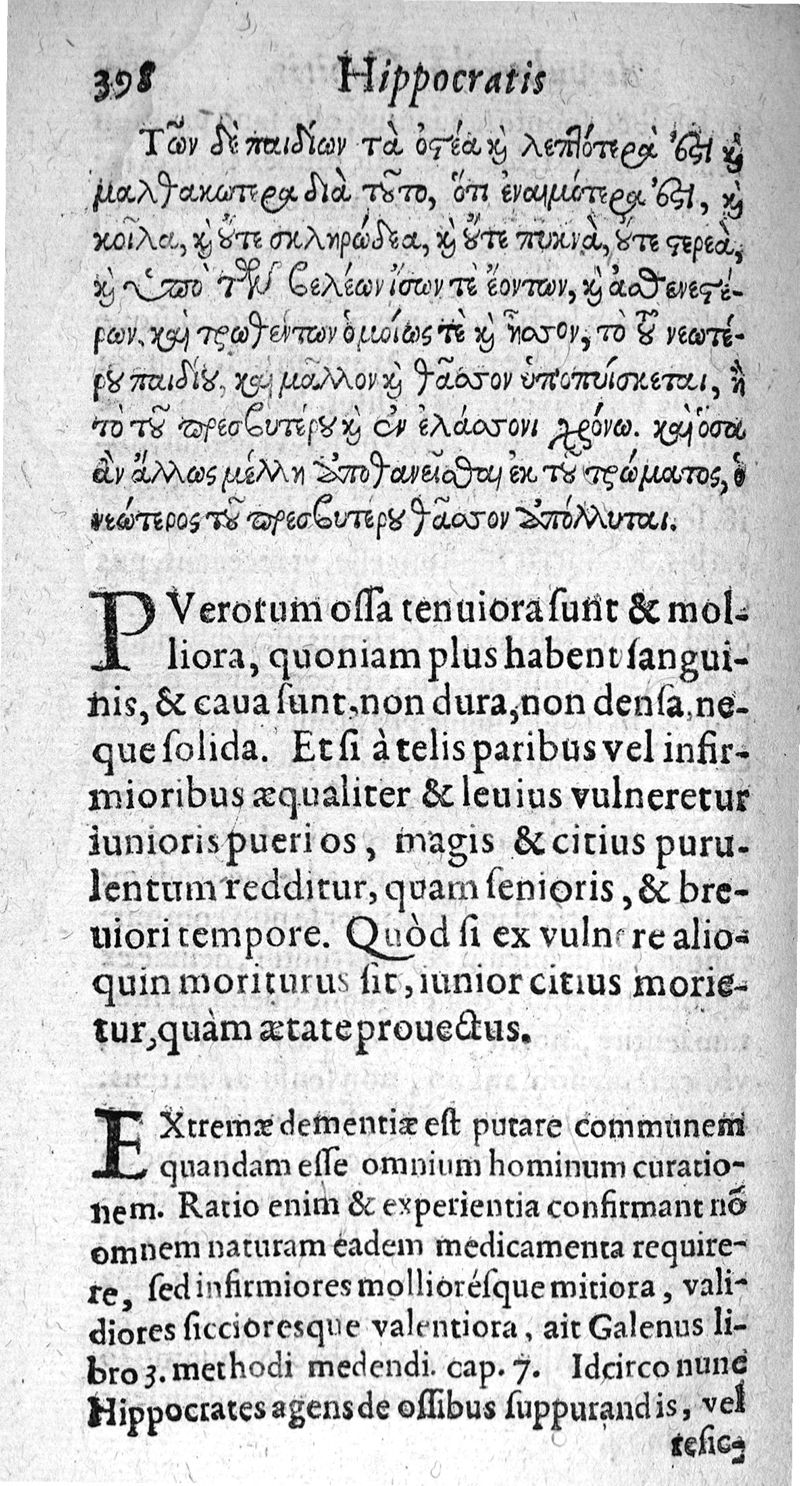 398 Hippocratis
Τῶν δὲ παιδίων τὰ ὀϛέα κỳ λεπτότερά ἐϛι κỳ
μαλθακώτερα διὰ τοῦτο, ὅτι ἐναιμότερα ἐϛι, κỳ
κοῖλα, κỳ οὔτε σκληρώδεα, κỳ οὔτε πυκνὰ, οὔτε ϛερεὰ,
κỳ ὑπὸ τῶν βελέων ἴσων τὲ ἐόντων, κỳ ἀσθενεϛέ-
ρων, καὶ τρωθέντων ὁμοίως τὲ κỳ ἧσσον, τὸ τοῦ νεωτέ-
ρου παιδίου, καὶ μᾶλλον κỳ θᾶσσον ὑποπυΐσκεται, ἢ
τὸ τοῦ πρεσβυτέρου κỳ ἐν ἐλάσσονι χρόνω. καὶ ὅσα
ἂν ἄλλως μέλλη ἀποθανεῖσθαι ἐκ τοῦ τρώματος, ὁ
νεώτερος τοῦ πρεσβυτέρου θᾶσσον ἀπόλλυται.
PVerorum ossa tenuiora sunt & mol-
liora, quoniam plus habent sangui-
nis, & caua sunt, non dura, non densa, ne-
que solida. Et si à telis paribus vel infir-
mioribus æqualiter & leuius vulneretur
iunioris pueri os, magis & citius puru-
lentum redditur, quam senioris, & bre-
uiori tempore. Quòd si ex vulnere alio-
quin moriturus sit, iunior citius morie-
tur, quàm ætate prouectus.
EXtremæ dementiæ est putare communem
quandam esse omnium hominum curatio-
nem. Ratio enim & experientia confirmant nō
omnem naturam eadem medicamenta require-
re, sed infirmiores molliorésque mitiora, vali-
diores siccioresque valentiora, ait Galenus li-
bro 3. methodi medendi. cap. 7. Idcirco nunc
Hippocrates agens de ossibus suppurandis, vel
resic-